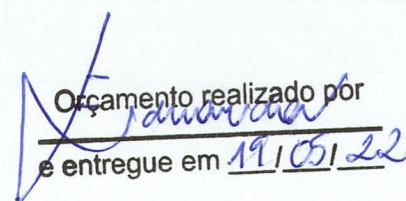 Orçamento realizado por
Eduarda
e entregue em 19/05/22